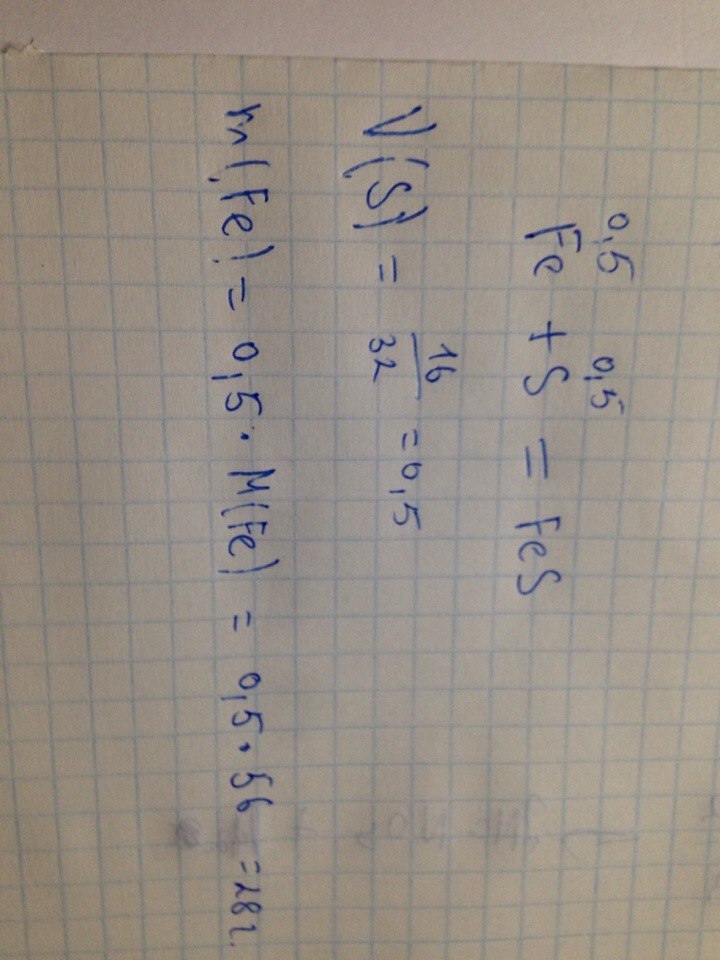 0,5 0,5
Fe + S = FeS
ν(S) = 16/32 = 0,5
m(Fe) = 0,5 · M(Fe) = 0,5 · 56 = 28г.